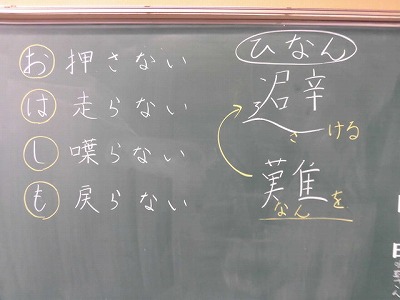 お 押さない
は 走らない
し 喋らない
も 戻らない
ひなん
避
さける
難
なんを